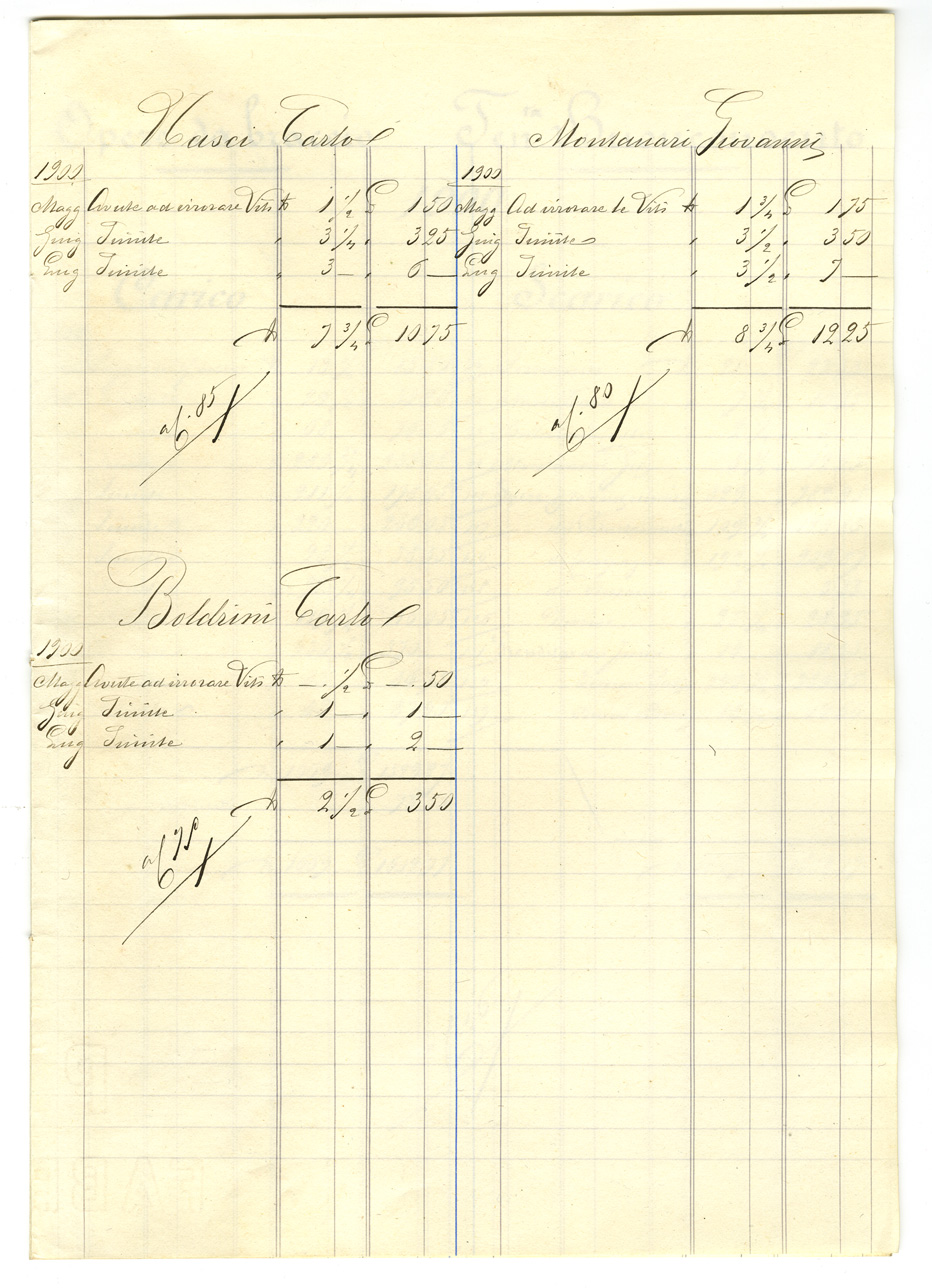 Nasci Carlo
1900
Magg Avute ad irrorare Viti ℔ 1 1/2 £ 1 50
Giug Simile " 3 1/4 " 3 25
Lug Simile " 3 — " 6 —
℔ 7 3/4 £ 10 75
a f. 85
Montanari Giovanni
1900
Magg Ad irrorare le Viti ℔ 1 3/4 £ 1 75
Giug Simile " 3 1/2 " 3 50
Lug Simile " 3 1/2 " 7 —
℔ 8 3/4 £ 12 25
a f. 80
Boldrini Carlo
1900
Magg Avute ad irrorare Viti ℔ — 1/2 £ — 50
Giug Simile " 1 — " 1 —
Lug Simile " 1 — " 2 —
℔ 2 1/2 £ 3 50
a f.